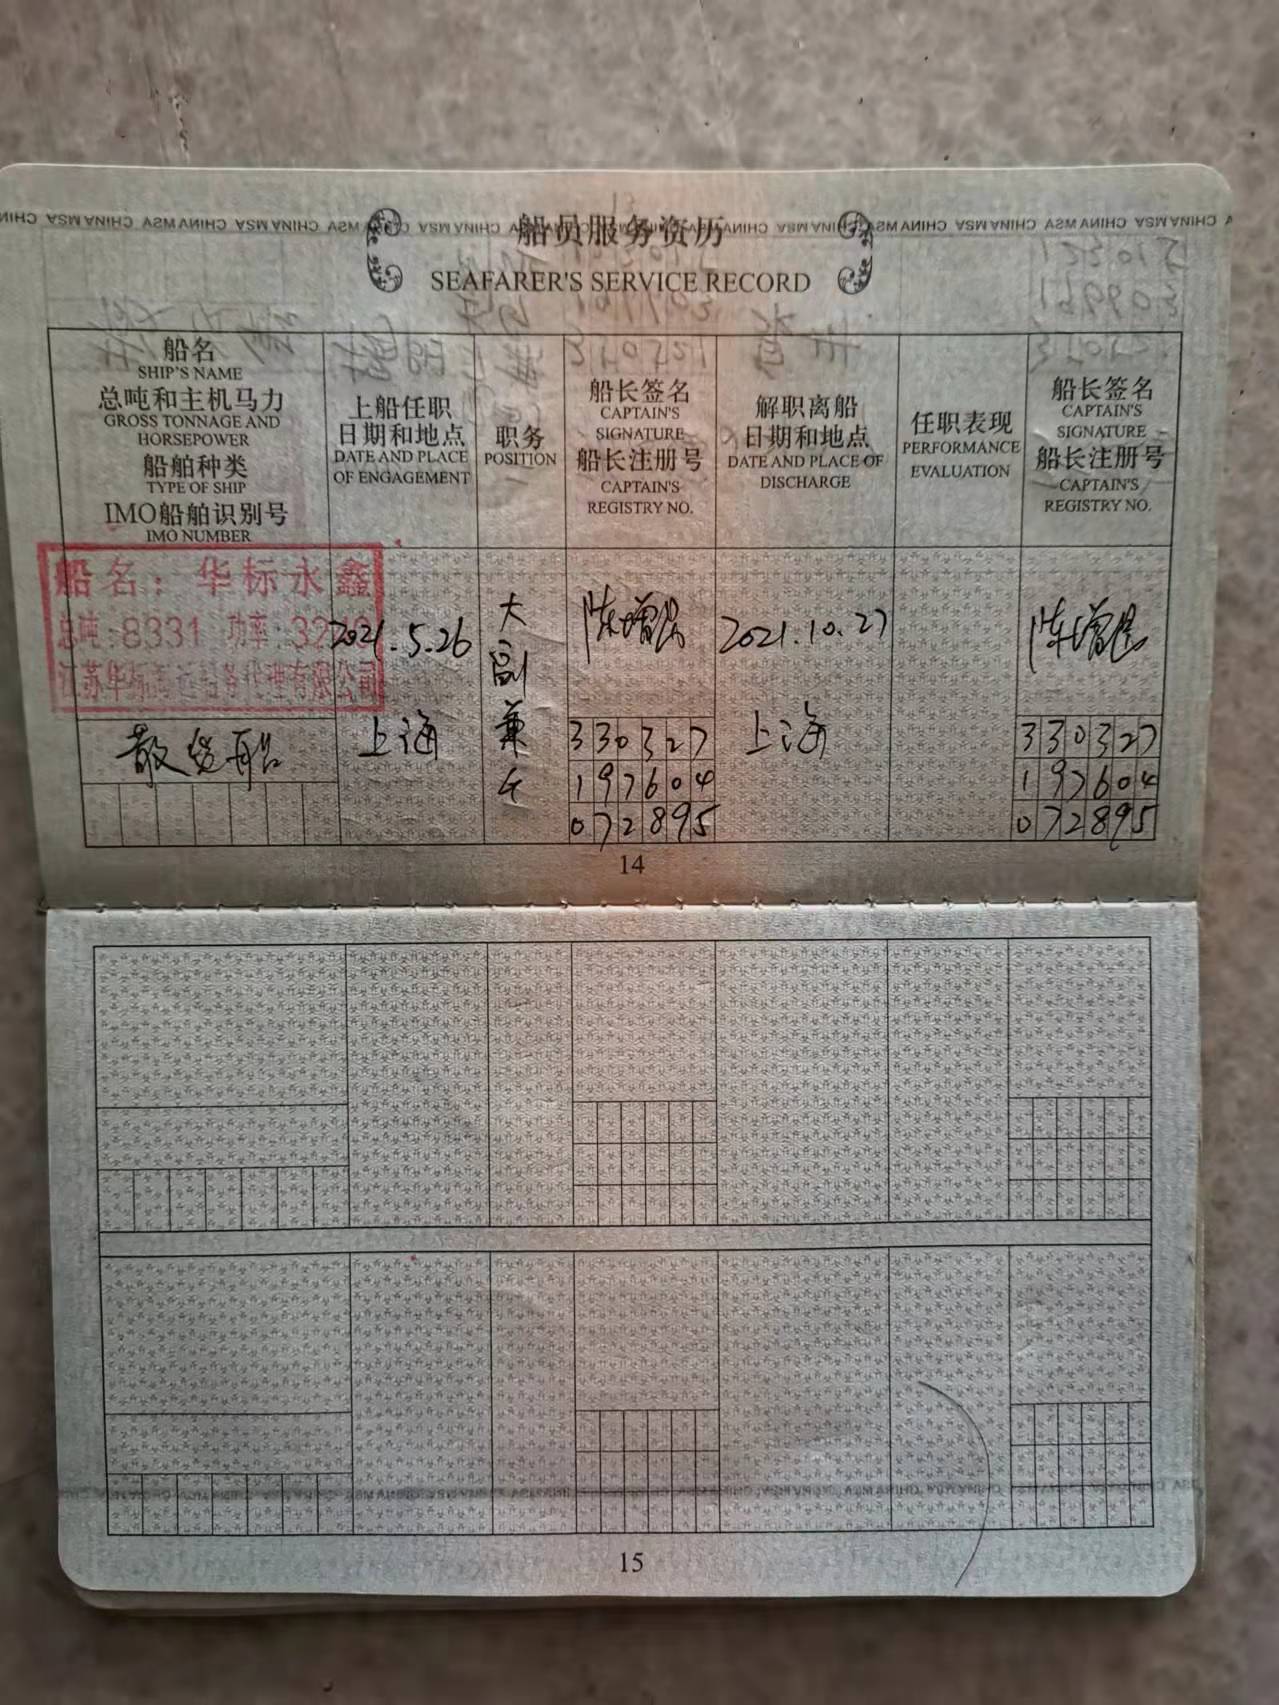 船员服务资历
SEAFARER'S SERVICE RECORD
船名
SHIP'S NAME
总吨和主机马力
GROSS TONNAGE AND
HORSEPOWER
船舶种类
TYPE OF SHIP
IMO船舶识别号
IMO NUMBER
上船任职
日期和地点
DATE AND PLACE
OF ENGAGEMENT
职务
POSITION
船长签名
CAPTAIN'S
SIGNATURE
船长注册号
CAPTAIN'S
REGISTRY NO.
解职离船
日期和地点
DATE AND PLACE OF
DISCHARGE
任职表现
PERFORMANCE
EVALUATION
船长签名
CAPTAIN'S
SIGNATURE
船长注册号
CAPTAIN'S
REGISTRY NO.
船名：华标永鑫
总吨:8331 功率:
江苏华标海运船务代理有限公司
散货船
2021.5.26
上海
大副兼
陈增
330327
197604
072895
2021.10.27
上海
陈增
330327
197604
072895
14
15